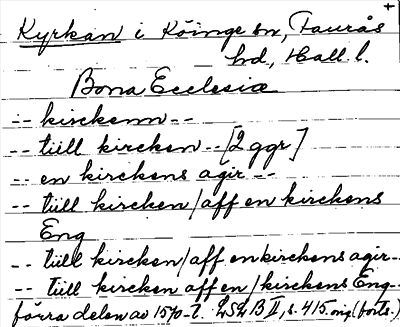 Kyrkan i Köinge sn, Faurås
hd, Hall. l.
Bona Ecclesiæ
-- kirckenn --
-- tiill kircken -- [2 ggr]
-- en kirckens agir --
-- tiill kircken / aff en kirckens
Eng
-- tiill kircken / aff en kirckens agir --
-- tiill kircken aff en / kirckens Eng --
förra delen av 1570-t. LSLB II, s. 415 orig (forts.)